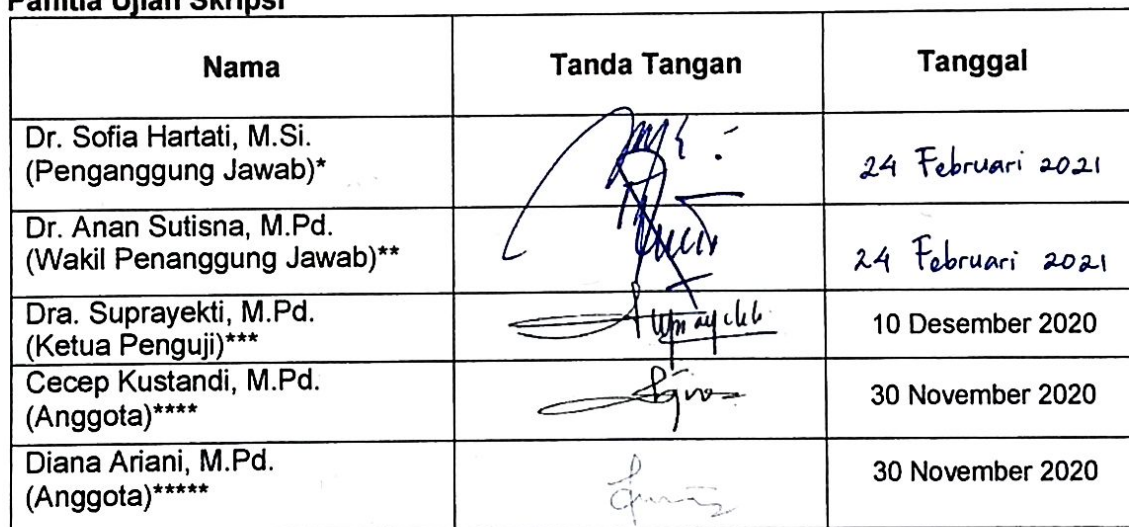 Panitia Ujian Skripsi
Nama
Tanda Tangan
Tanggal
Dr. Sofia Hartati, M.Si.
(Penganggung Jawab)*
24 Februari 2021
Dr. Anan Sutisna, M.Pd.
(Wakil Penanggung Jawab)**
24 Februari 2021
Dra. Suprayekti, M.Pd.
(Ketua Penguji)***
10 Desember 2020
Cecep Kustandi, M.Pd.
(Anggota)****
30 November 2020
Diana Ariani, M.Pd.
(Anggota)*****
30 November 2020